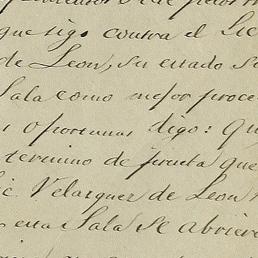 que sigo contra el Lic
de Leon, su estado S
Sala como mejor proce
s oportunas digo: Qu
termino de prueba que
ic. Velazquez de Leon
esta Sala Se abrier